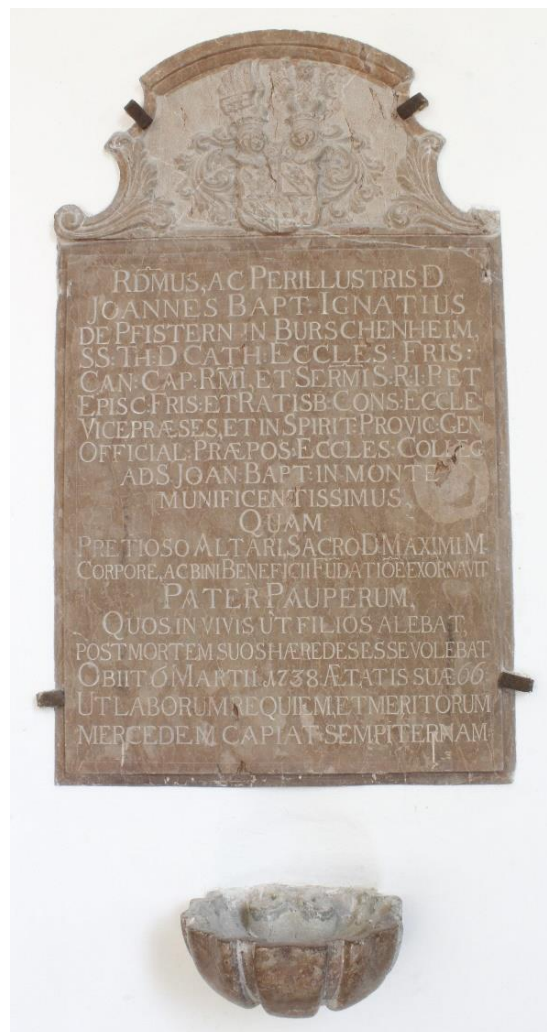 RD̅M̅US, AC PERILLUSTRIS D
JOANNES BAPT: IGNATIUS
DE PFISTERN IN BURSCHENHEIM,
SS: TH: D CATH: ECCLES: FRIS:
CAN: CAP: RM̅I̅, ET SERM̅I̅ S: R: I: P: ET
EPISC: FRIS: ET RATISB: CONS: ECCLE:
VICEPRÆSES, ET IN SPIRIT: PROVIC: GEN
OFFICIAL: PRÆPOS: ECCLES: COLLEG
AD S. JOAN: BAPT: IN MONTE
MUNIFICENTISSIMUS,
QUAM
PRETIOSO ALTARI, SACRO D MAXIMI M
CORPORE, AC BINI BENEFICII FŪDATIŌE EXORNAVIT
PATER PAUPERUM,
QUOS IN VIVIS UT FILIOS ALEBAT,
POST MORTEM SUOS HÆREDES ESSE VOLEBAT
OBIIT 6 MARTII 1738 ÆTATIS SUÆ 66
UT LABORUM REQUIEM, ET MERITORUM
MERCEDEM CAPIAT SEMPITERNAM